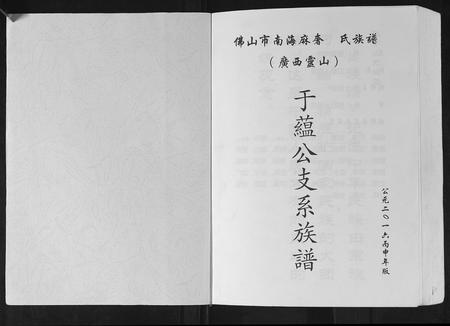 佛山市南海麻奢 氏族譜
(廣西靈山)
于蘊公支系族譜
公元二〇一六丙申年版